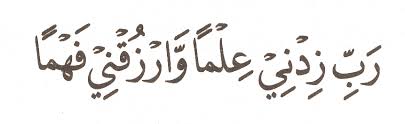 رَبِّ زِدْنِيْ عِلْمًا وَّارْزُقْنِيْ فَهْمًا